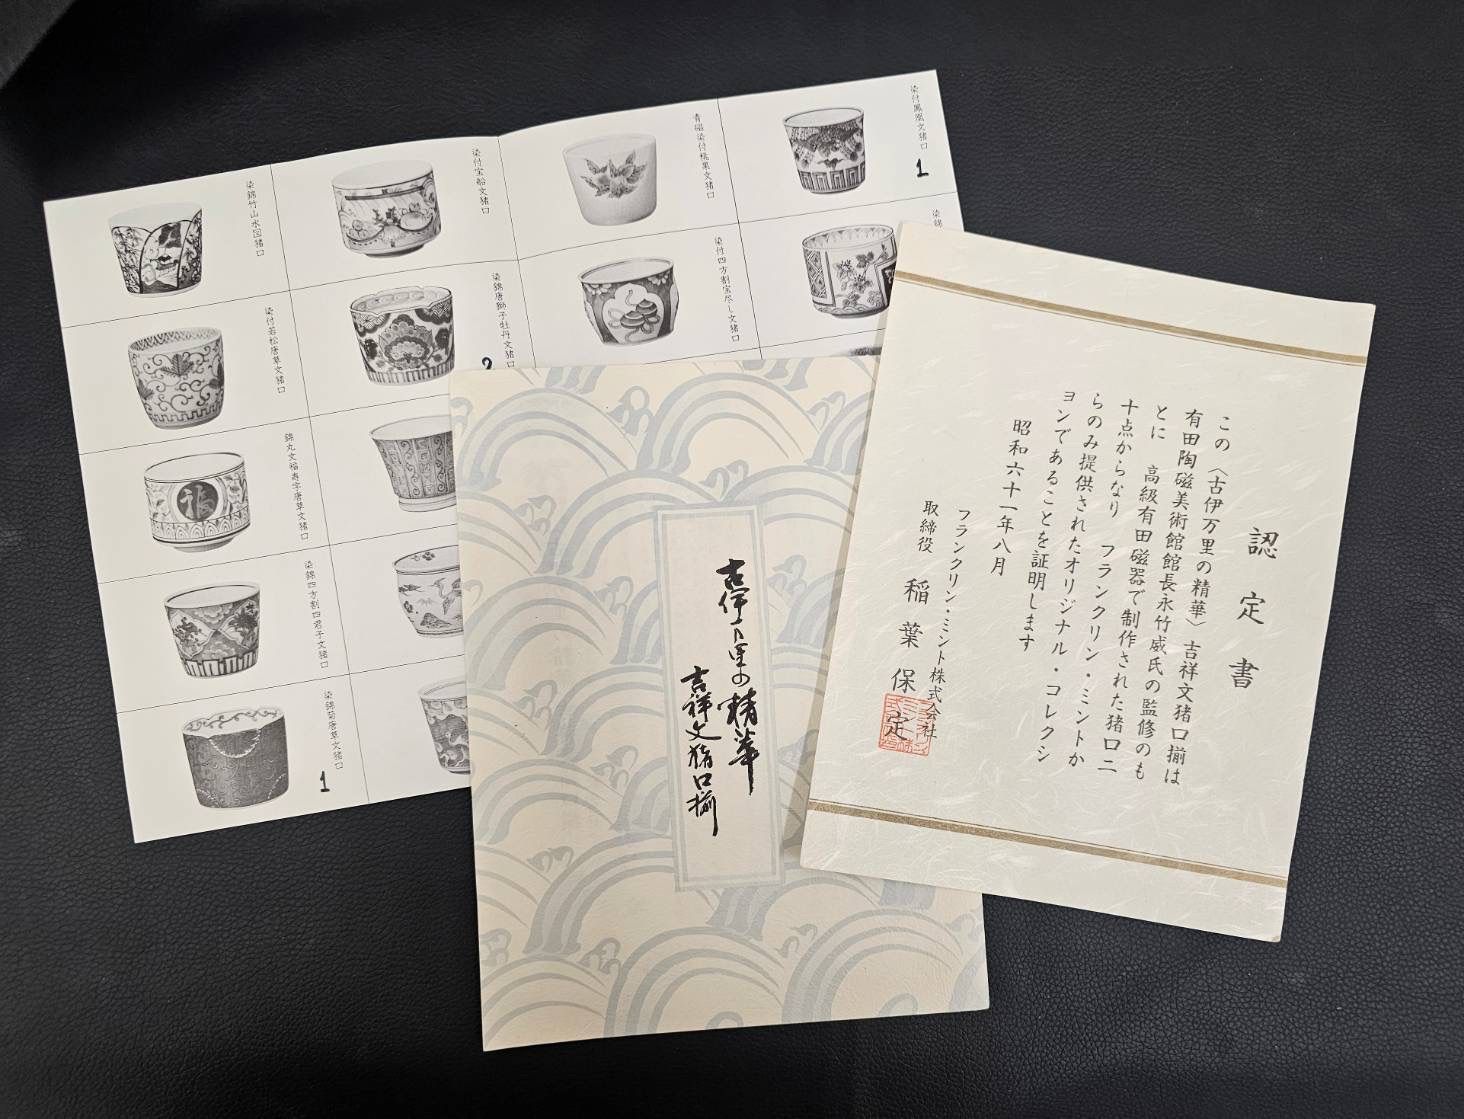 染錦竹山水図猪口
染付宝船文猪口
青磁染付桃果文猪口
染付鳳凰文猪口
1
染付若松唐草文猪口
染錦唐獅子牡丹文猪口
2
染付四方割宝尽し文猪口
染錦
錦丸文福寿字唐草文猪口
福
染錦四方割四君子文猪口
染錦菊唐草文猪口
1
古伊万里の精華
吉祥文猪口揃
認定書
この〈古伊万里の精華〉吉祥文猪口揃は
有田陶磁美術館館長永竹威氏の監修のも
とに 高級有田磁器で制作された猪口二
十点からなり フランクリン・ミントか
らのみ提供されたオリジナル・コレクシ
ヨンであることを証明します
昭和六十一年八月
フランクリン・ミント株式会社
取締役 稲葉保定